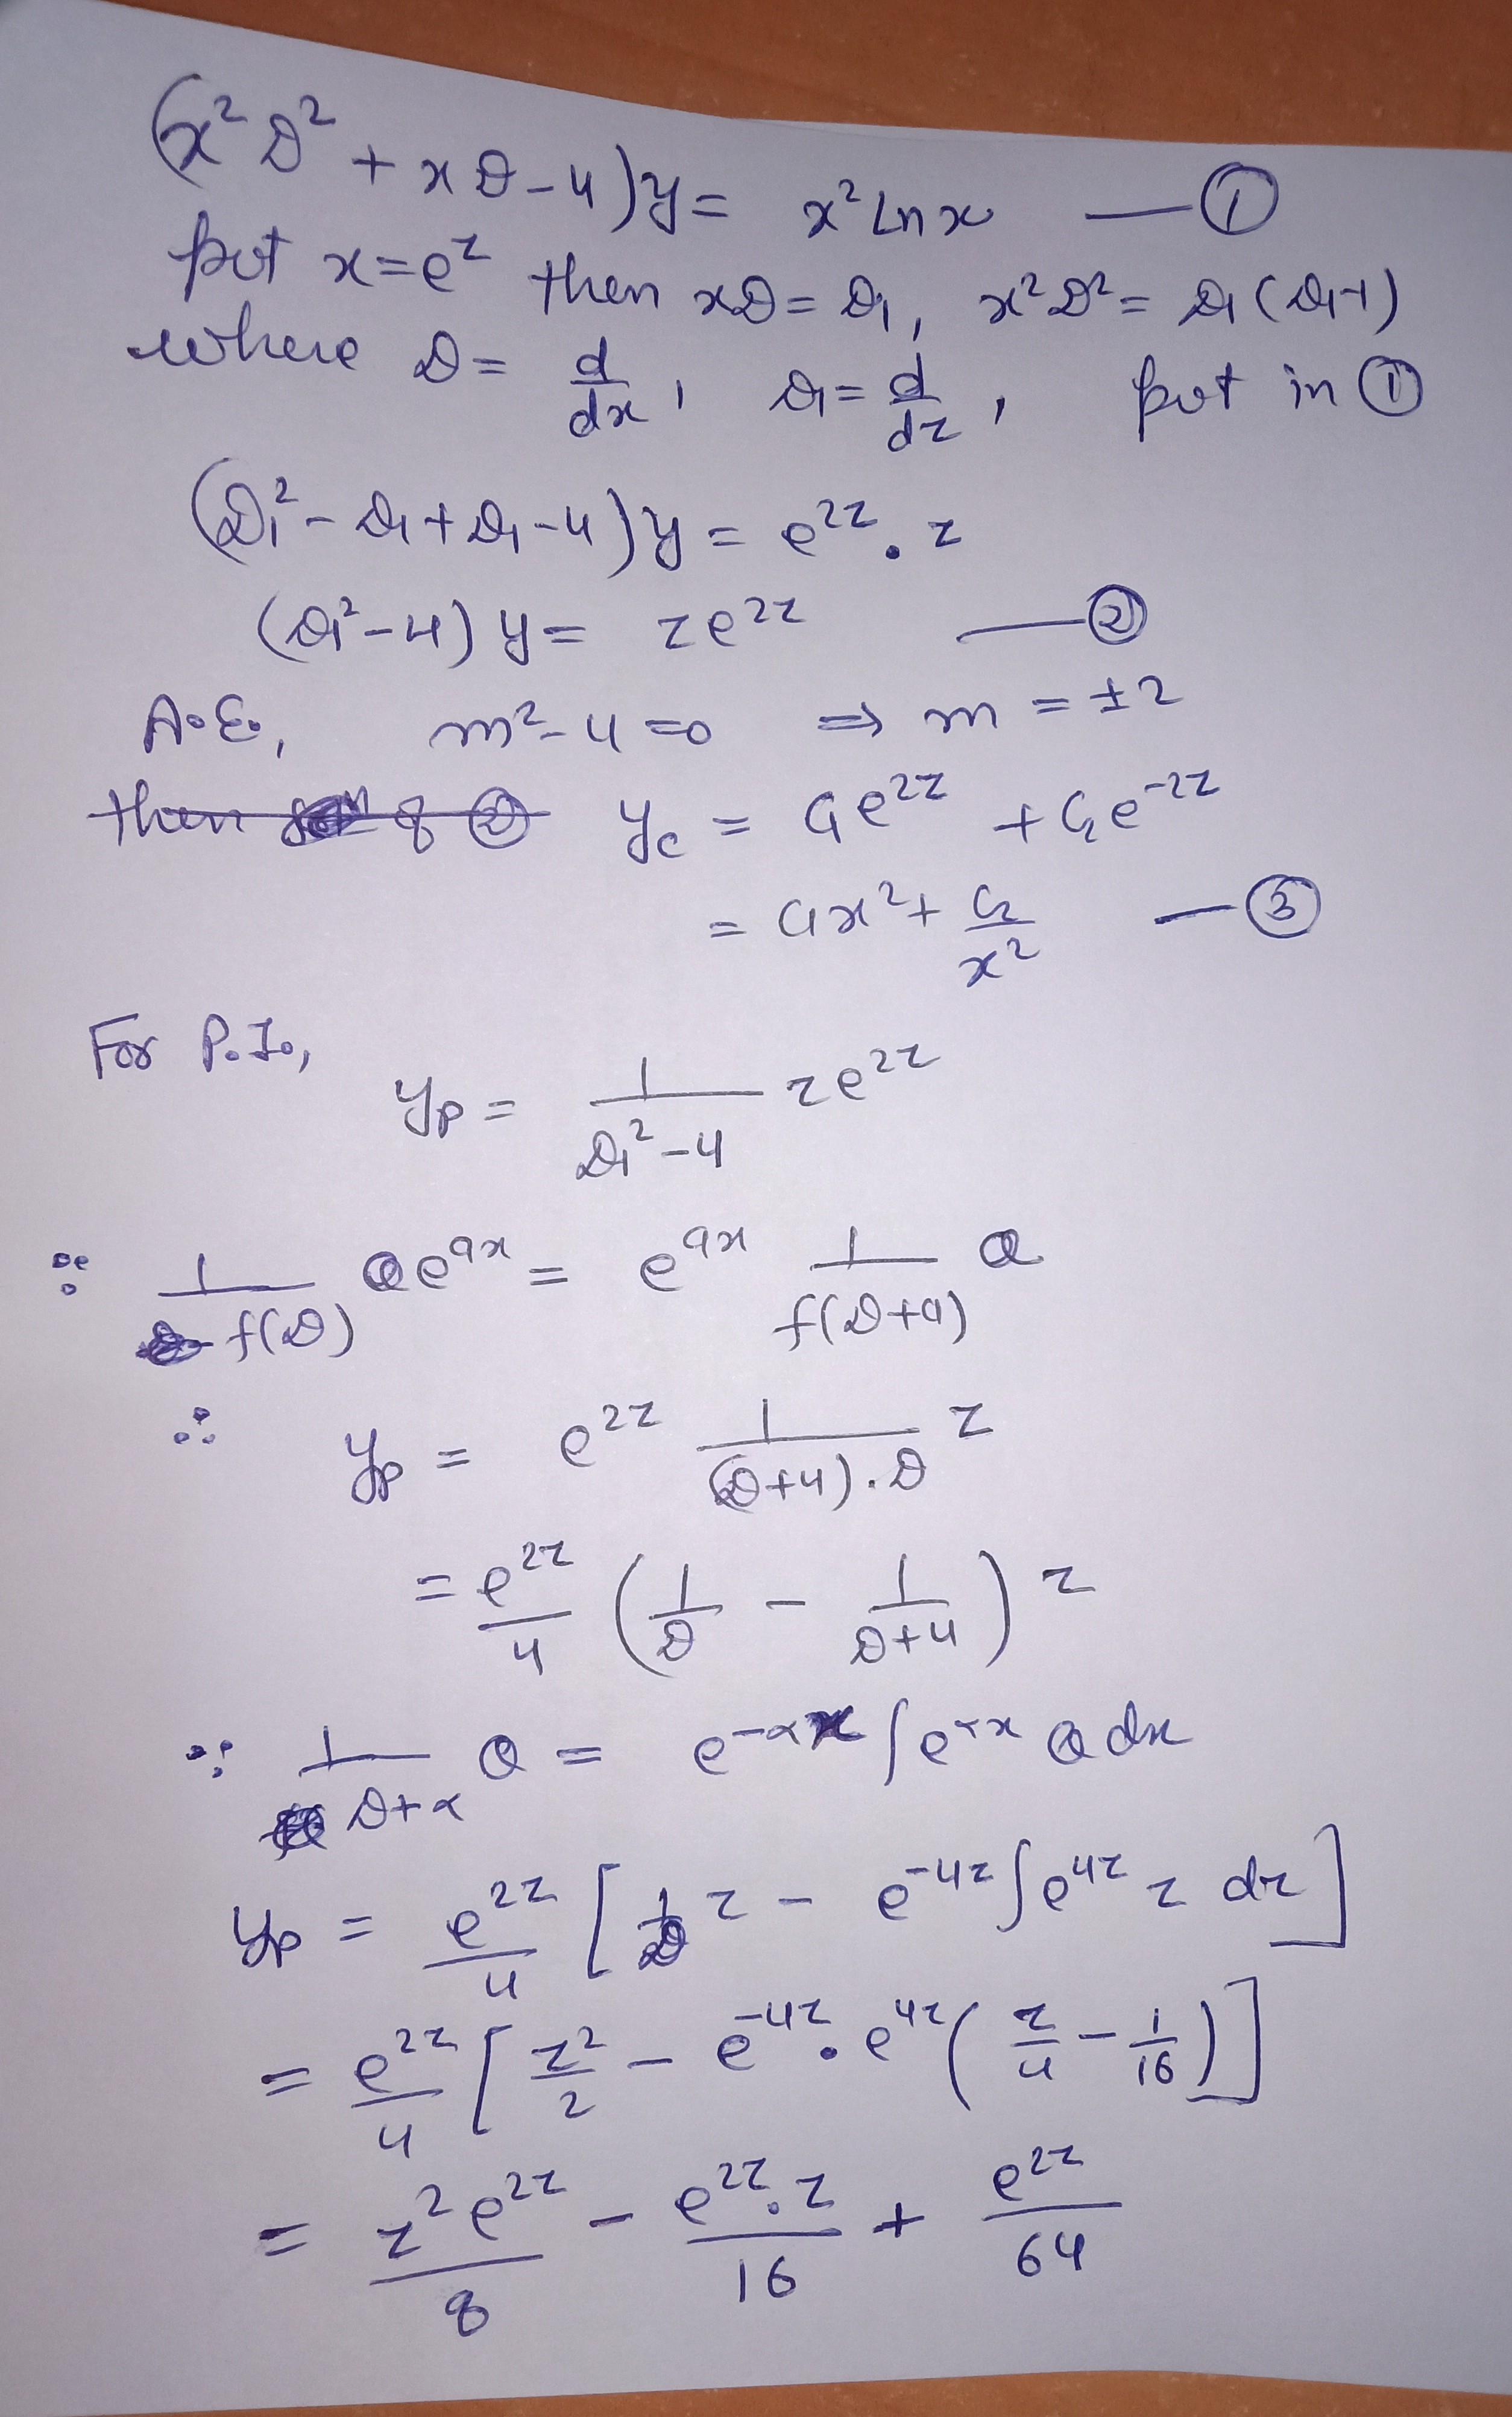 (x²D² + xD - 4)y = x² Ln x — ①
put x = e^z then xD = D₁, x²D² = D₁(D₁-1)
where D = d/dx, D₁ = d/dz, put in ①
(D₁² - D₁ + D₁ - 4)y = e^{2z} . z
(D₁² - 4)y = ze^{2z} — ②
A.E., m² - 4 = 0 ⇒ m = ±2
then of ② y_c = C₁e^{2z} + C₂e^{-2z}
= C₁x² + C₂/x² — ③
For P.I.,
y_p = 1/(D₁² - 4) ze^{2z}
∵ 1/f(D) Qe^{ax} = e^{ax} 1/f(D+a) Q
∴ y_p = e^{2z} 1/((D+4).D) z
= e^{2z}/4 (1/D - 1/(D+4)) z
∵ 1/(D+α) Q = e^{-αx} ∫e^{αx} Q dx
y_p = e^{2z}/4 [1/D z - e^{-4z} ∫e^{4z} z dz]
= e^{2z}/4 [z²/2 - e^{-4z} . e^{4z} (z/4 - 1/16)]
= z²e^{2z}/8 - e^{2z}.z/16 + e^{2z}/64